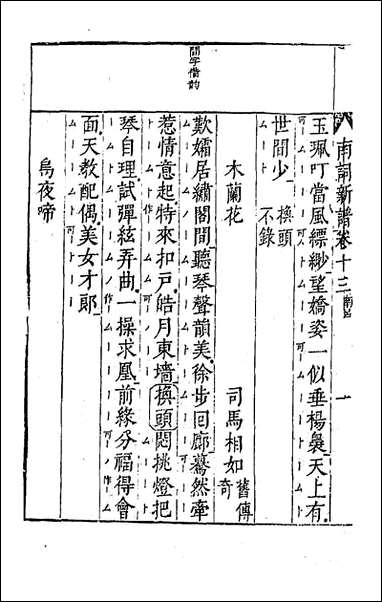 間字借韵
南詞新譜卷十三 南呂 一
玉珮叮當風縹緲望嬌姿一似垂楊裊天上有
世間少 換頭不錄
木蘭花 司馬相如 舊傳奇
歎孀居繡閣間聽琴聲韻美徐步回廊驀然牽
惹情意起特來扣戶皓月東墻 換頭 悶挑燈把
琴自理試彈絃弄曲一操求凰前緣分福得會
面天教配偶美女才郎
烏夜啼